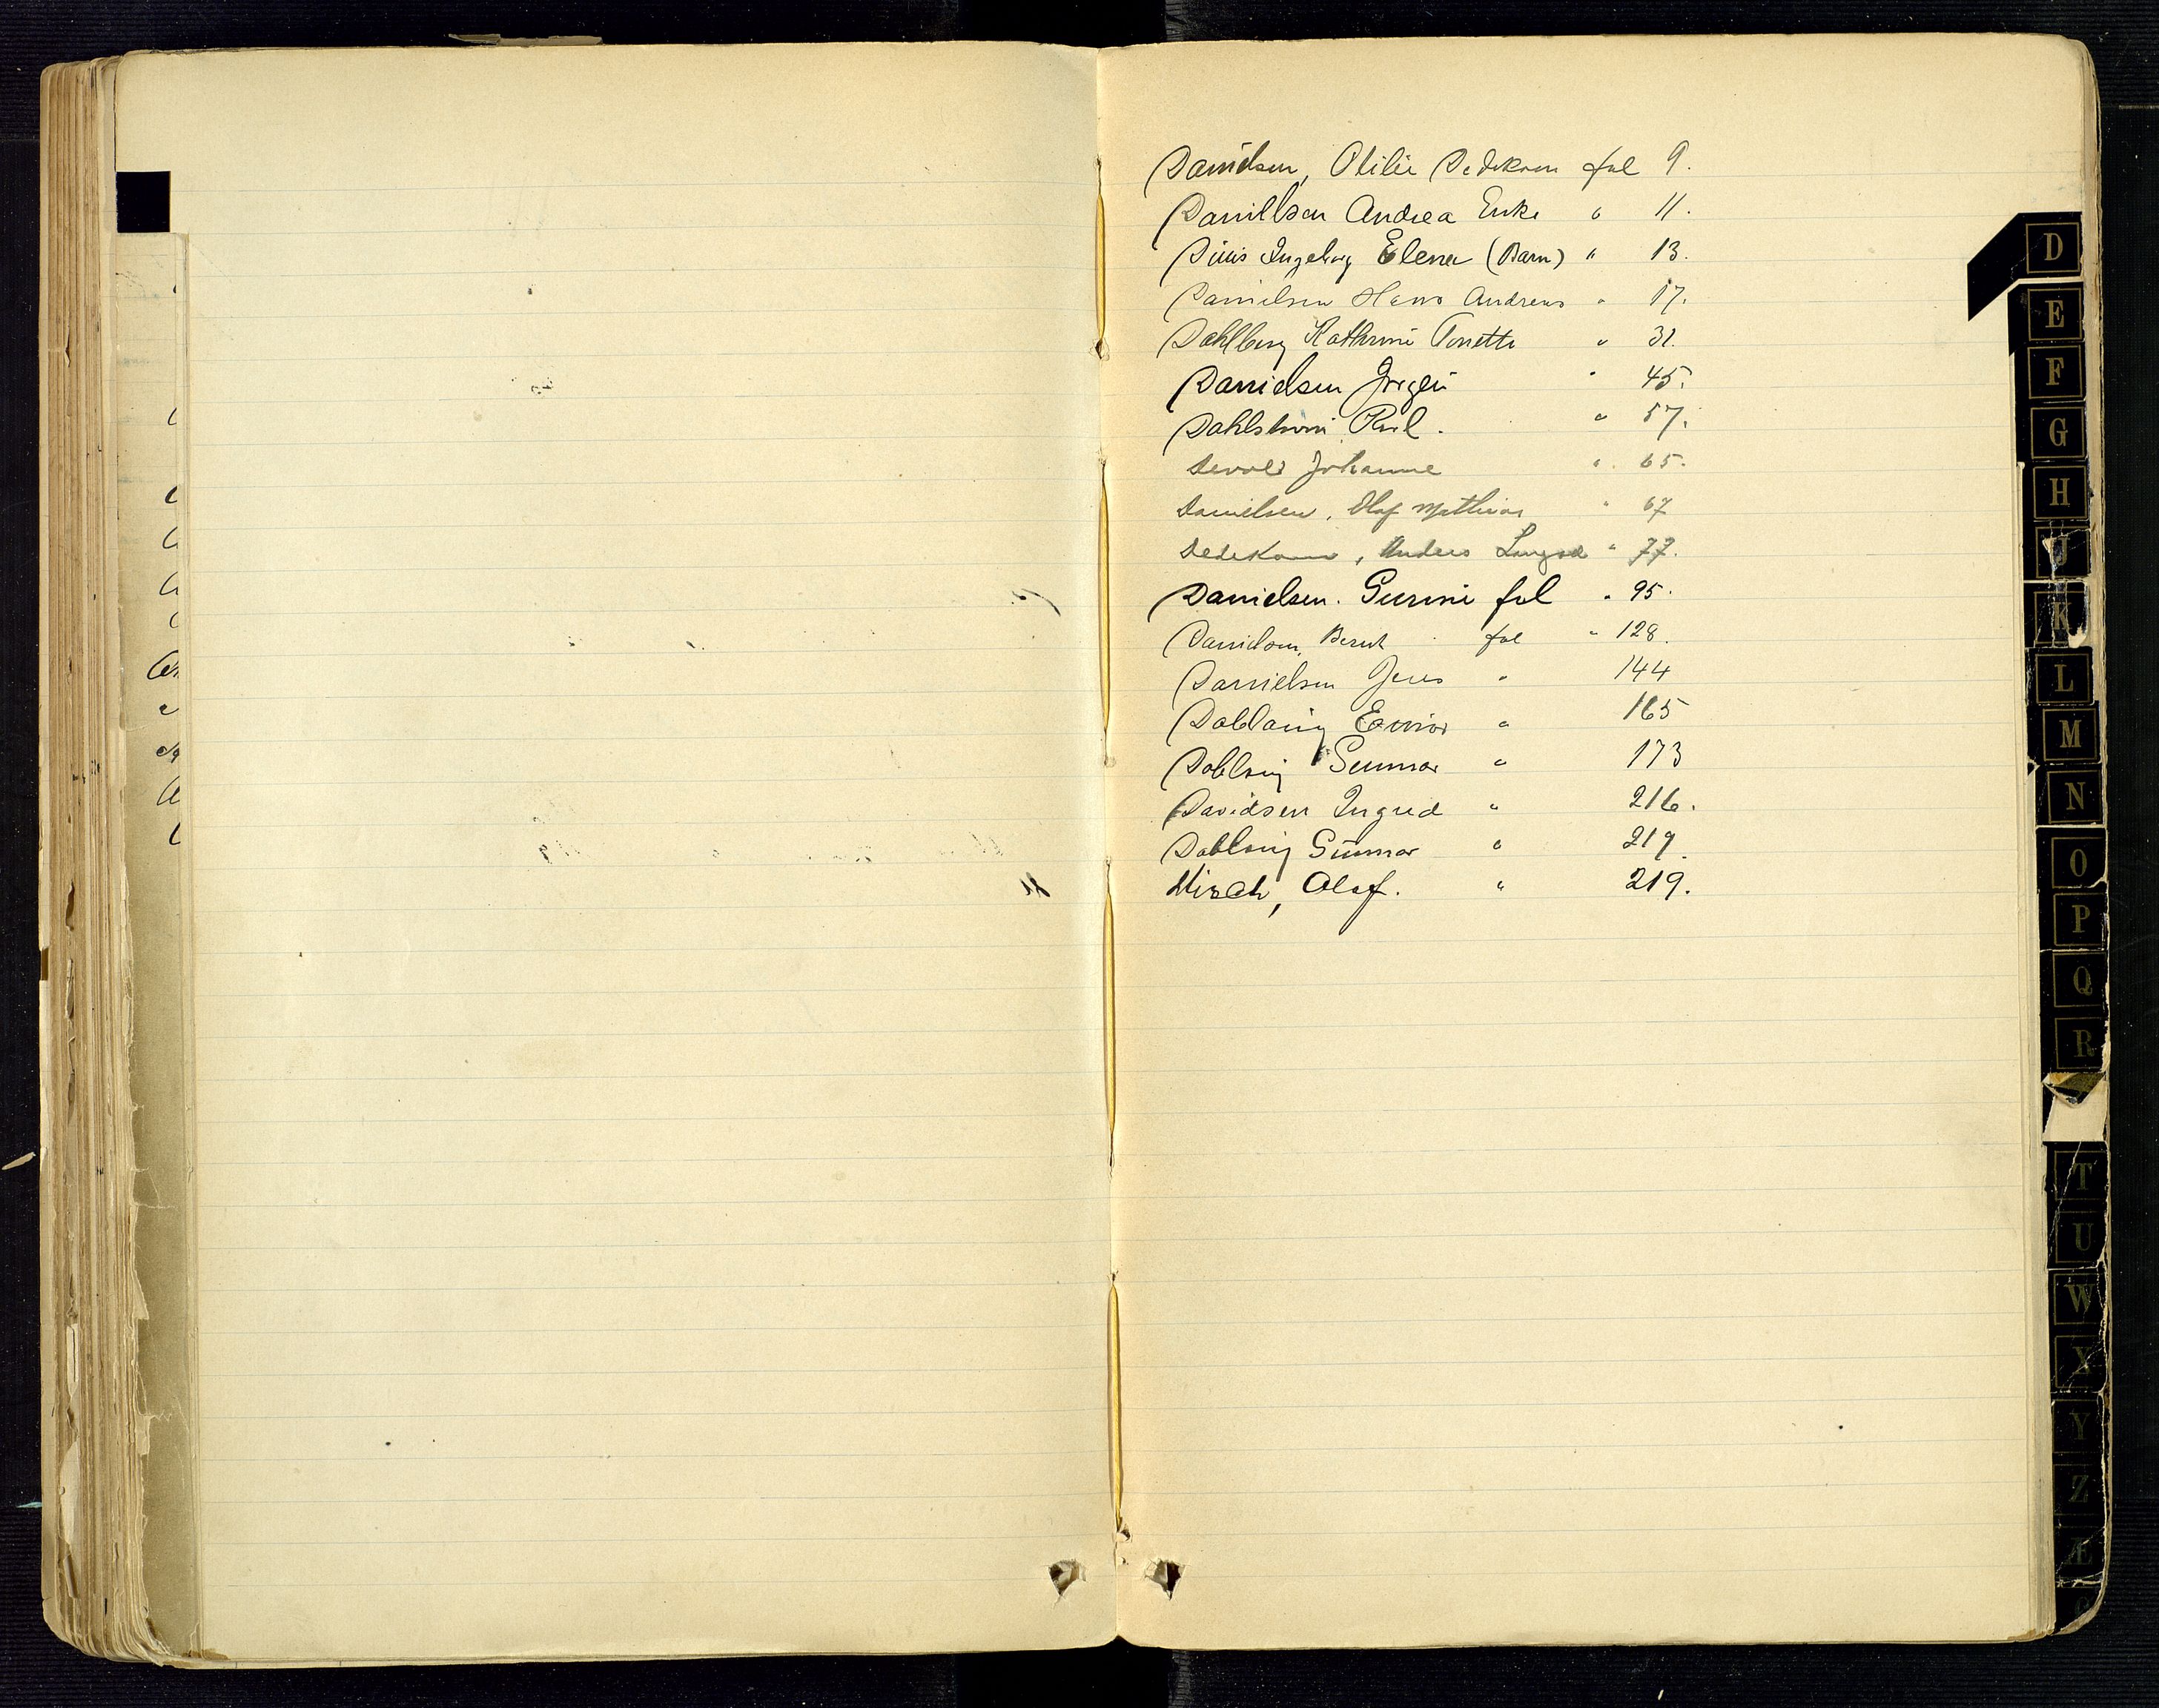 Danielsen, Otilie Dedekam fol 9.
Daniellsen Andrea Enke " 11.
Ingeborg Elena (Barn) " 13.
Danielsen Hans Andreas " 17.
Dahlberg Kathrine Tonette " 31.
Danielsen Jørgen " 45.
Dahlstrøm Karl. " 57.
Devold Johanne " 65.
Danielsen, Olaf Mathias " 67
Dedekam, Anders " 77.
Danielsen. Gurine fol " 95.
Danielsen, Bernt fol " 128.
Danielsen Jens " 144
Einar " 165
Gunnar " 173
Davidsen Ingrid " 216.
Gunnar " 219.
Disch, Olaf. " 219.
D
E
F
G
H
J
K
L
M
N
O
P
Q
R
T
U
W
X
Y
Z
Æ